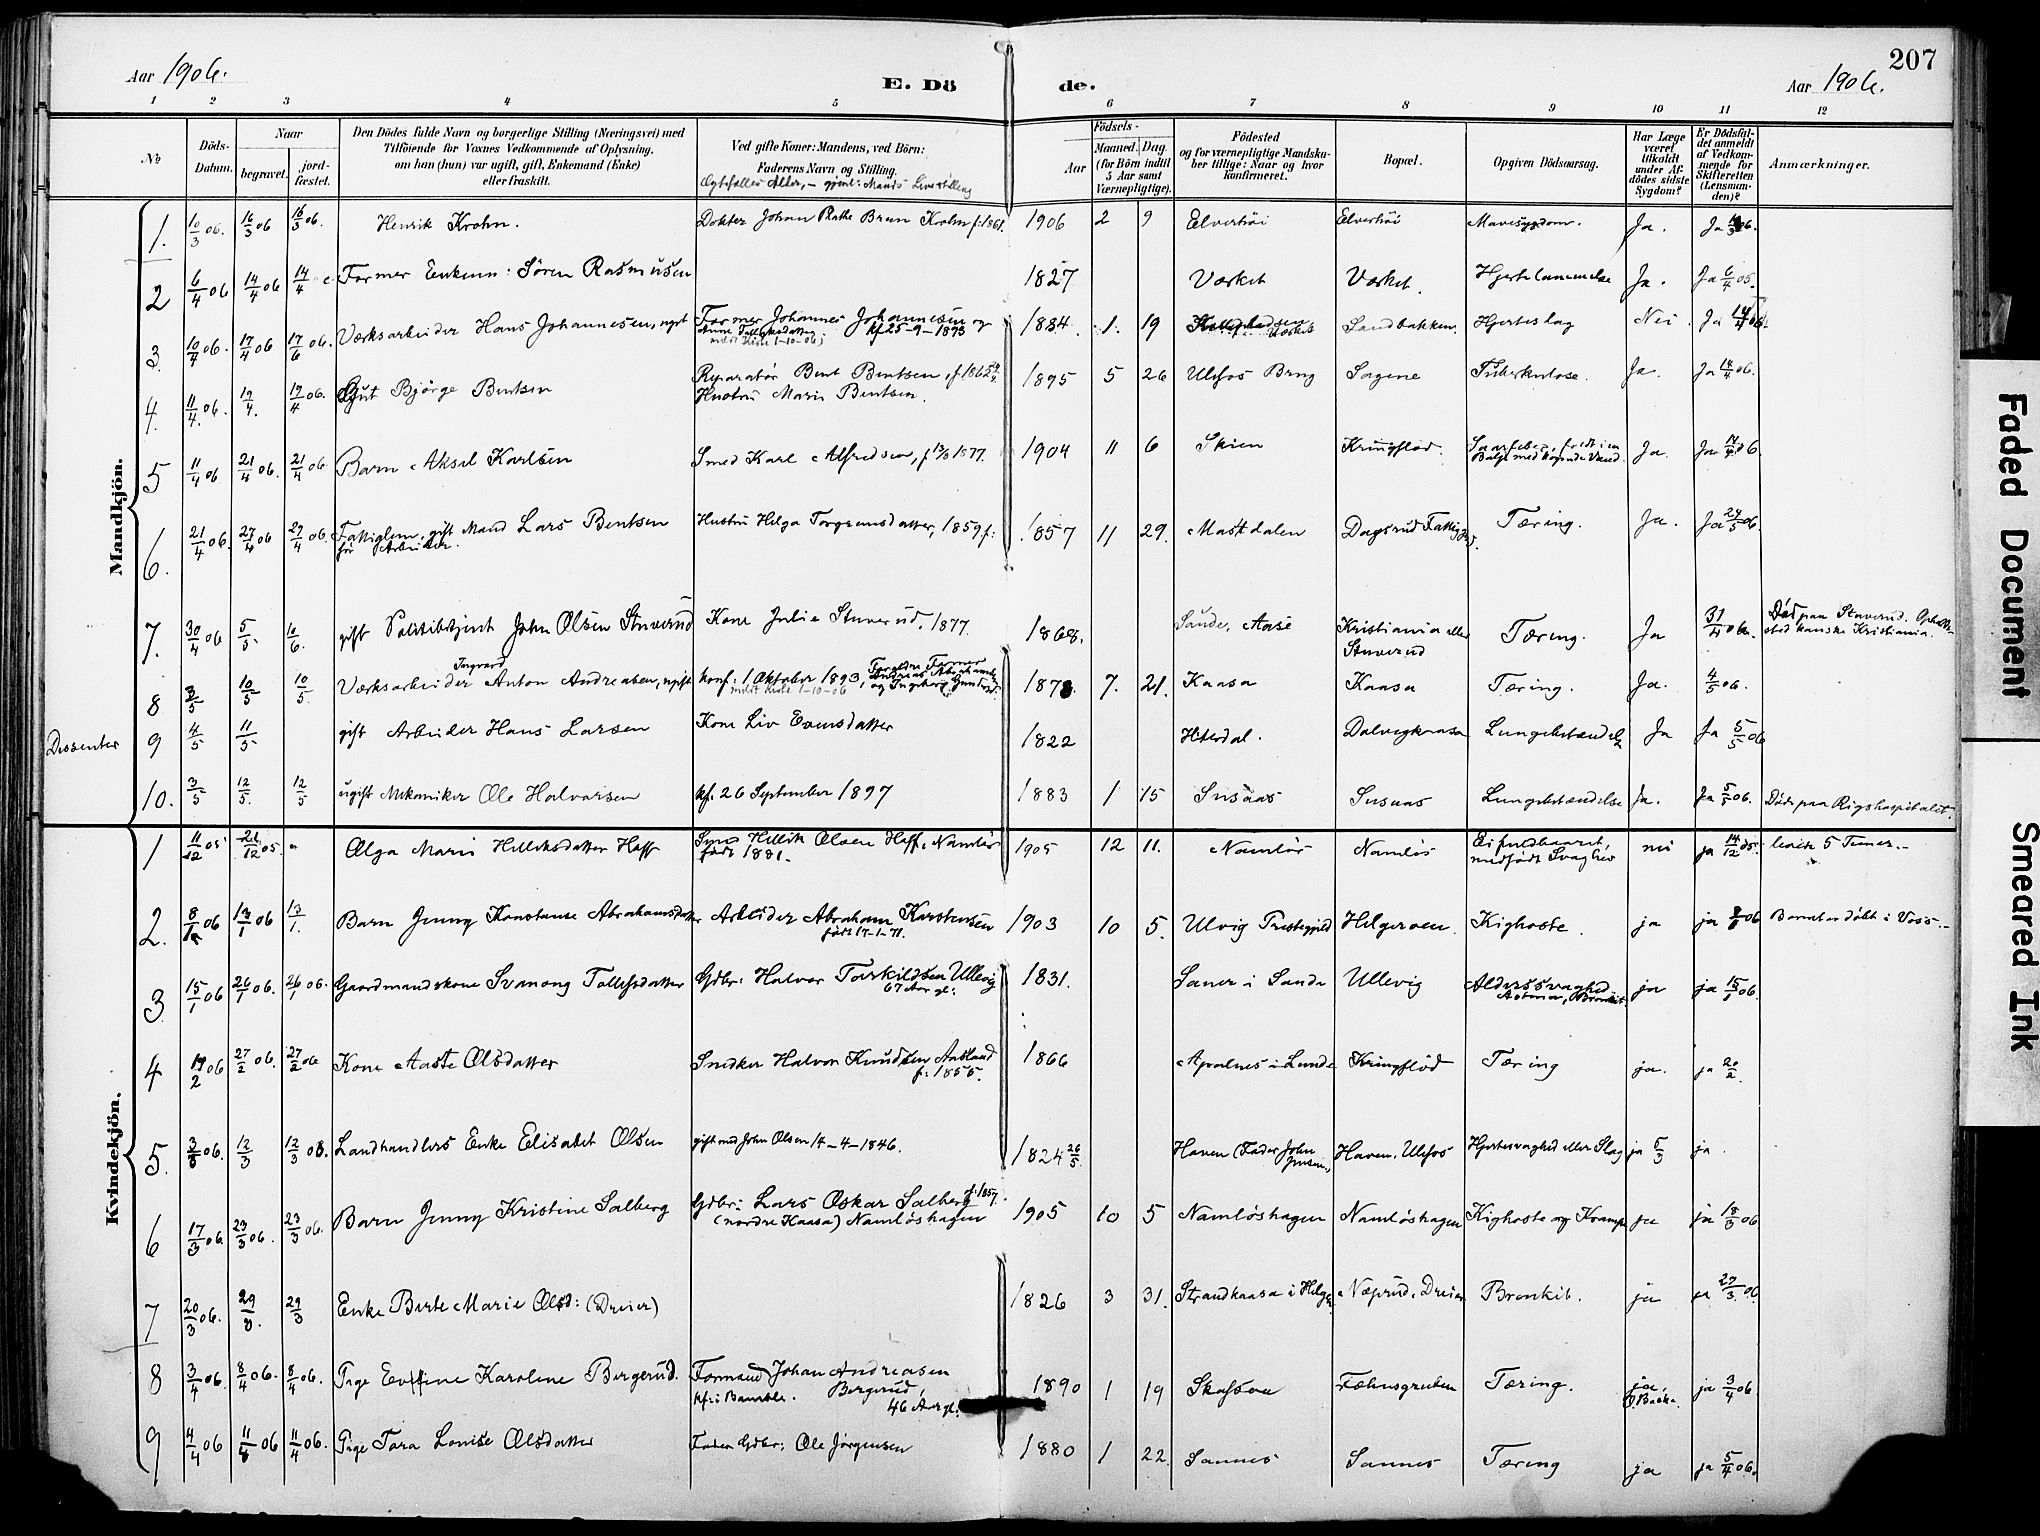 207
Aar 1906.
E. Dö de.
Aar 1906.
1 2 3 4 5 6 7 8 9 10 11 12
No
Döds-Datum.
Naar
begravet.
jord-fæstet.
Den Dödes fulde Navn og borgerlige Stilling (Næringsvei) med
Tilföiende for Voxnes Vedkommende af Oplysning,
om han (hun) var ugift, gift, Enkemand (Enke)
eller fraskilt.
Ved gifte Koner: Mandens, ved Börn:
Faderens Navn og Stilling.
Födsels-
Aar
Maaned. Dag.
(for Börn indtil
5 Aar samt
Værnepligtige).
Födested
og for værnepligtige Mandska-
ber tillige: Naar og hvor
konfirmeret.
Bopæl.
Opgiven Dödsaarsag.
Har Læge
været
tilkaldt
under Af-
dödes sidste
Sygdom?
Er Dödsfal-
det anmeldt
af Vedkom-
mende for
Skifteretten
(Lensman-
den)?
Anmærkninger.
Mandkjön.
1. 10/3 06. 16/3 06 16/3 06. Henrik Krohn. Dokter Johan Brun Krohn f. 1861. 1906 2 9 Elverhöi Elverhöi Mavesygdom. Ja. Ja
2 6/4 06 14/4 06 14/4 Farmer Enkem: Sören Rasmusen 1827 Værket Værket. Hjertelammelse Ja. Ja 6/4 06.
3. 10/4 06. 17/4 06 17/6 06. Værksarbeider Hans Johannesen, ugift Farmer Johannes Johannesen og
kf 25-9-1898
1884. 1. 19 Værket Sandbakken. Hjerteslag Nei Ja
4. 11/4 06. 19/4. 19/4 06. Gut Björge Bentsen Reparatör Bent Bentsen, f 1865
Hustru Marie Bentsen.
1895 5 26 Ulefos Brug Sagene Tuberkulose. Ja. Ja 14/4 06.
5 11/4 06 21/4 06. 21/4 06 Barn Aksel Karlsen Smed Karl Alfredsen, f 1877. 1904 11 6 Skien Kringflod. faldt i en
Balje med kogende Vand. Ja. Ja 06.
6. 21/4 06. 27/4 06 29/4 06. Fattiglem, gift Mand Lars Bentsen
för Arbeider.
Hustru Helga Torgrimsdatter, 1859 f: 1857 11 29. Mastdalen Dagsrud Fattiggd. Tæring. Ja. Ja 06.
7. 30/4 06 5/5. 10/6. gift Politibetjent John Olsen Stuverud Kone Julie Stuverud. 1877. 1868. Saude, Aase Kristiania eller
Stuverud
Tæring. Ja 31/4 06. Död paa Stuverud. Opholds-
sted kanske Kristiania.
8 3/5 10/5 10/5. Værksarbeider Ingvard Anton Andreasen, ugift konf. 1 Oktober 1893, Forældre Farmer
1878. 7. 21. Kaasa Kaasa Tæring. Ja. 4/5 06.
Dissenter 9 4/5 11/5 gift Arbeider Hans Larsen Kone Liv Evensdatter 1822 Hiterdal. Dalvegkaasa Lungebetændelse Ja Ja 5/5 06
10. 3/5 12/5. 12/5 ugift Mekaniker Ole Halvorsen kf. 26 September 1897 1883 1 15 Susaas Susaas Lungebetændelse Ja. Ja 5/5 06. Död paa Rigshospitalet.
Kvindekjön.
1 11/12 05 21/12 05. " Olga Marie Helleksdatter Hoff Hellek Olsen Hoff, Namlös
født 1881.
1905 12 11. Namlös Namlös Ei fuldbaaret,
medfödt Svaghed
nei ja 14/12 05. levede 5 Timer.
2. 8/1 06 13/1 06 13/1. Barn Jenny Konstanse Abrahamsdatter Arbeider Abraham Karstensen
født 17-1-71.
1903 10 5. Ulvig Prestegjeld Helgeroen. Kighoste. ja ja 06 Barnet er døbt i Voss.
3. 15/1 06 26/1 06. 26/1 06. Gaardmandskone Svanoug Tollefsdatter Gdbr: Halvor Torkildsen Ullevig
67 Aar gl:
1831. Saner i Sande Ullevig Alderssvaghed
Astma, Bronkit
ja ja 15/1 06.
4 19/2 06 27/2 06. 27/2 06 Kone Aaste Olsdatter Snedker Halvor Knudsen Aasland
f: 1855.
1866 Apalnes i Lunde Kringflod Tæring ja. ja 20/2.
5. 3/3 06. 12/3 12/3 06. Landhandlers Enke Elisabet Olsen gift med John Olsen 14-4-1846. 1824 26/5. Haven (Fader John
Jensen)
Haven, Ulefos Hjertesvaghed eller Slag ja 5/3 ja.
6 17/3 06. 23/3 06. 23/3 06. Barn Jenny Kristine Salberg Gdbr: Lars Oskar Salberg f. 1857.
(nordre Kaasa) Namløshagen
1905 10 5 Namløshagen Namløshagen Kighoste og Krampe ja ja 18/3 06
7 20/3 06. 29/3. 29/3 Enke Berte Marie Olsd: (Dreier) 1826 3 31. Strandkaasa i Helg Næprud, Dreier Bronkit. ja ja 06
8 3/4 06. 8/4 06. 8/4 06. Pige Karoline Bergerud. Formand Johan Andreasen
kfr: i Bamble. Bergerud,
46 Aar gl:
1890 1 19 Skafsaa Fæhnsgruben Tæring. ja,
ja 3/4 06.
9 4/4 06 11/4 06 11/4 06. Pige Tara Louise Olsdatter Fader Gdbr: Ole Jörgensen 1880 1 22. Sannes Sannes Tæring ja ja 5/4 06.
Faded Document
Smeared Ink